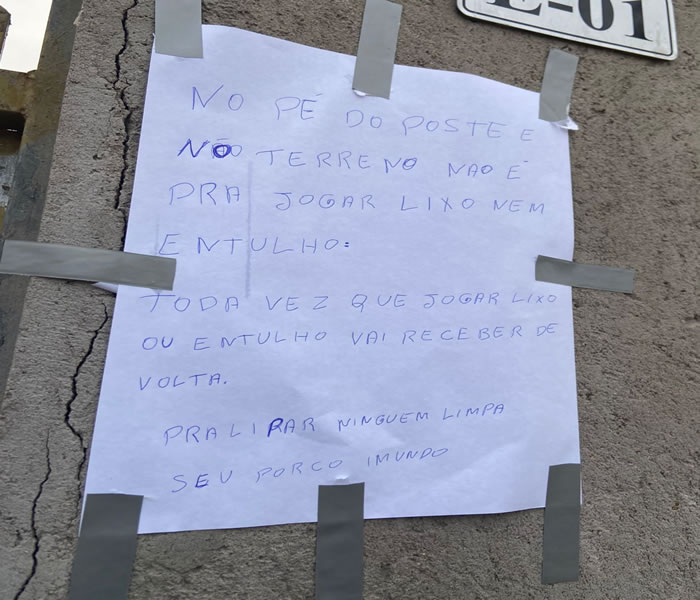 E-01
NO PÉ DO POSTE E
NO TERRENO NAO É
PRA JOGAR LIXO NEM
ENTULHO:
TODA VEZ QUE JOGAR LIXO
OU ENTULHO VAI RECEBER DE
VOLTA.
PRALIRAR NINGUEM LIMPA
SEU PORCO IMUNDO